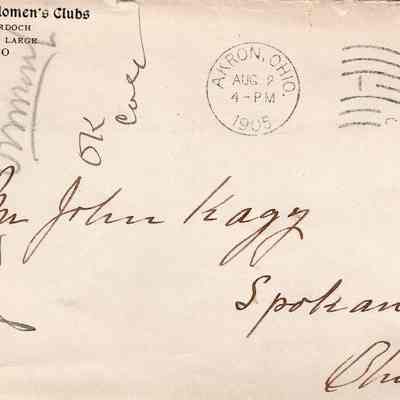 Women's Clubs
RDOCH
LARGE
O
OK
Cover
AKRON, OHIO.
AUG. 2
4 - PM
1905
1
C
John Kagy
Spokan
Oh